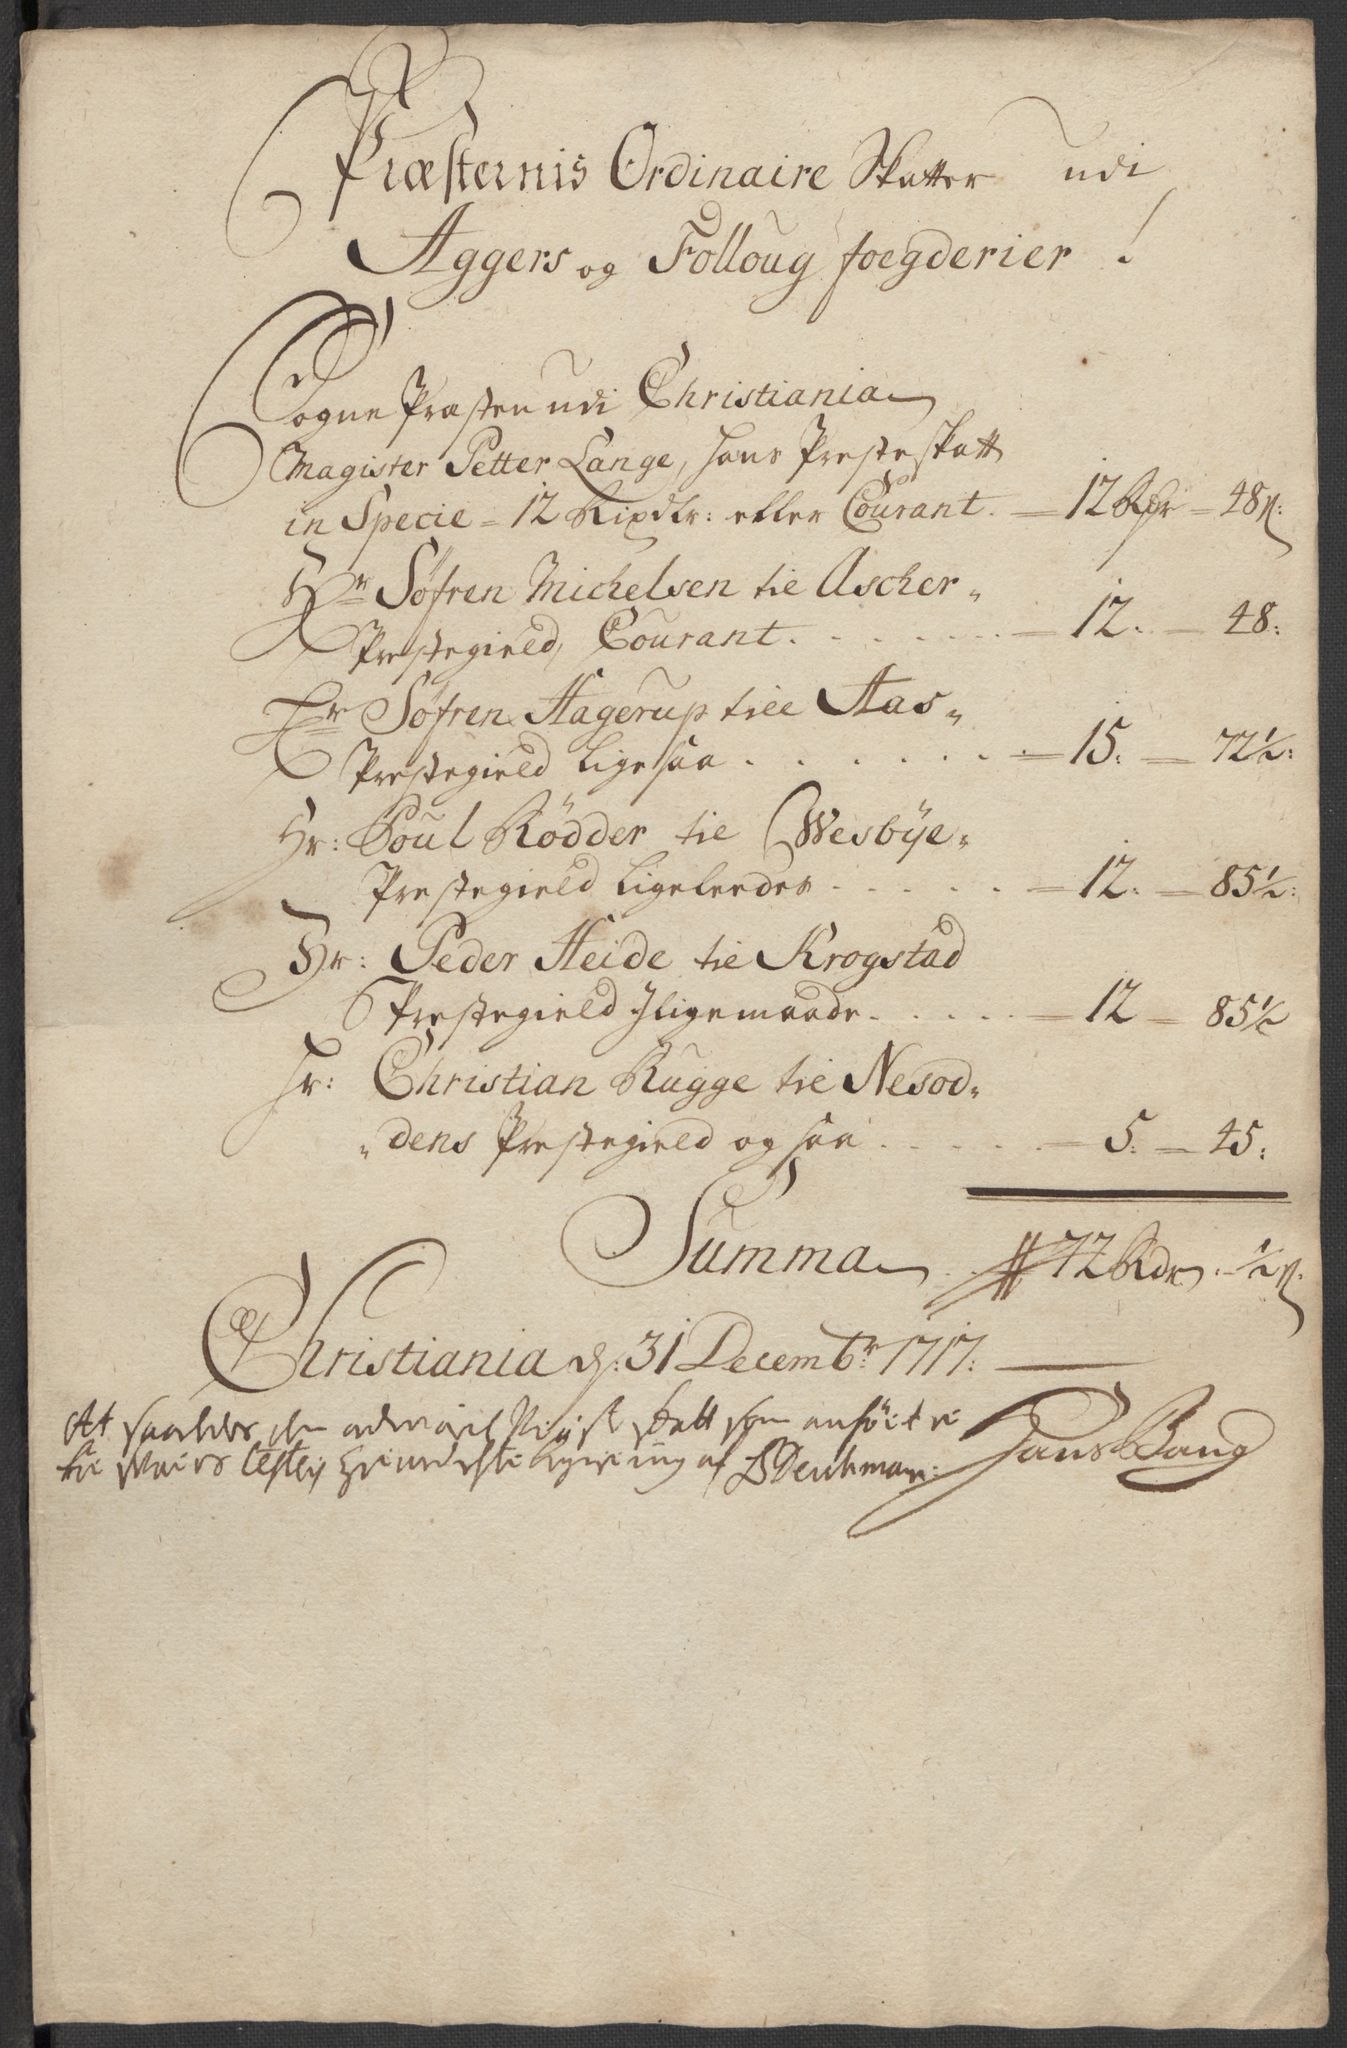 Præsternis Ordinaire Skatter udi
Aggers og Folloug foegderier
Sogne Præsten udi Christiania
Magister Petter Lange, hans Præsteskatt
in Specie = 12 Rixdlr: eller Courant. = 12 Rdr = 48 ß:
Hr Søfren Michelsen til Ascher„
Præstegield, Courant. . . . . . = 12. = 48:
Hr Søfren Hagerup till Aas„
Præstegield ligesaa . . . . . . = 15. = 72½:
Hr: Poul Rödder til Wesbÿe„
Præstegield ligeleedes . . . . . = 12. = 85½:
Hr: Peder Heide til Krogstad
Præstegield Iligemaade. . . . . = 12 = 85½
Hr: Christian Rugge til Nesod„
„dens Præstegield og saa . . . . . = 5. = 45:
Summa . 72 Rdr . ½ ß.
Christiania d: 31 Decembr: 1717:
At saaledes den skatt som anføit er
af BDeichman: Hans Bang